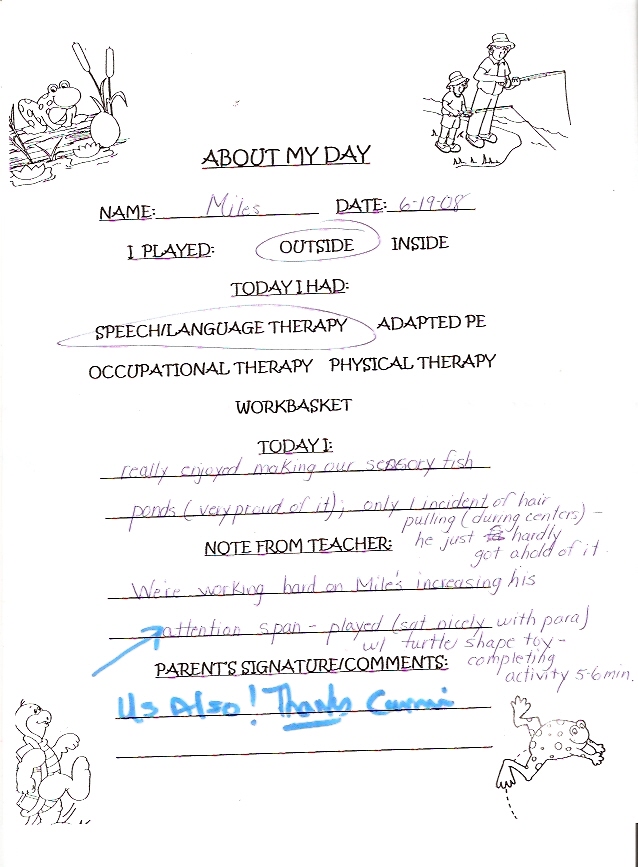 ABOUT MY DAY
NAME: Miles DATE: 6-19-08
I PLAYED: OUTSIDE INSIDE
TODAY I HAD:
SPEECH/LANGUAGE THERAPY ADAPTED PE
OCCUPATIONAL THERAPY PHYSICAL THERAPY
WORKBASKET
TODAY I:
really enjoyed making our sensory fish
ponds (very proud of it); only 1 incident of hair
pulling (during centers) -
he just hardly
got ahold of it.
NOTE FROM TEACHER:
We're working hard on Mile's increasing his
attention span - played (sat nicely with para)
w/ turtle shape toy -
completing
activity 5-6 min.
PARENT'S SIGNATURE/COMMENTS:
Us Also! Thanks